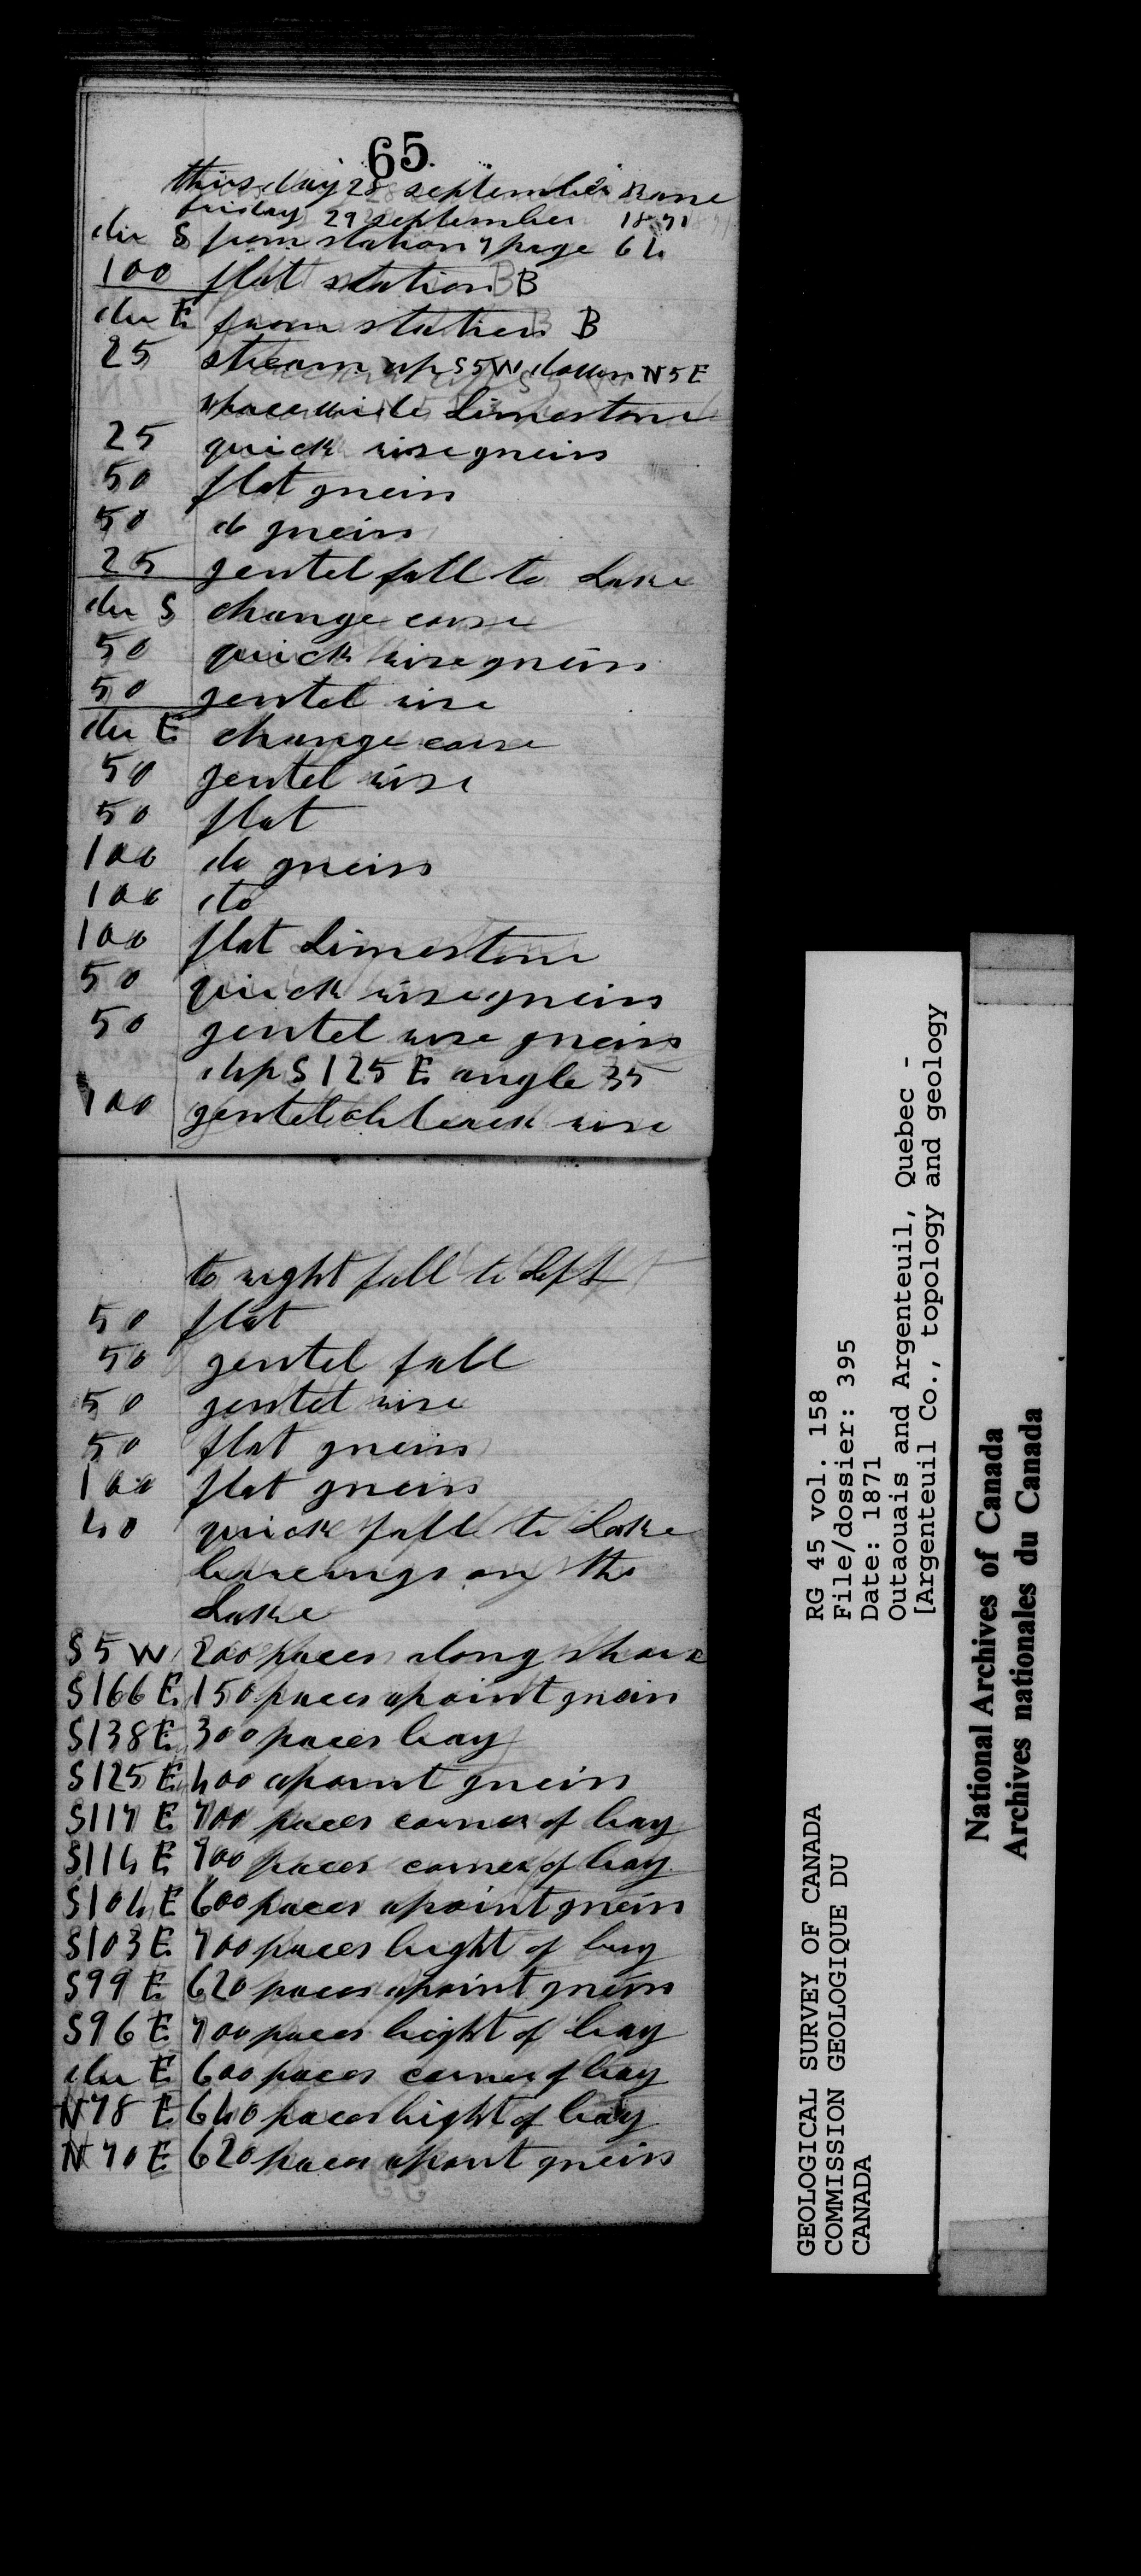 65
thirsday 28 september Rane
friday 29 september 1871
du S from station 7 page 64
100 flat station B
du E from station B
25 stream up S5W down N5E
1 pace wide Limestone
25 quick rise gneiss
50 flat gneiss
50 do gneiss
25 gentel fall to Lake
du S change corse
50 quick rise gneiss
50 gentel rise
du E change corse
50 gentel rise
50 flat
100 do gneiss
100 do
100 flat Limestone
50 quick rise gneiss
50 gentel rise gneiss
dip S 125 E angle 35
100 gentel rise
to right fall to Left
50 flat
50 gentel fall
50 gentel rise
50 flat gneiss
100 flat gneiss
40 quick fall to Lake
bareings on the
Lake
S 5 W 200 paces along shore
S 166 E 150 paces apoint gneiss
S 138 E 300 paces bay
S 125 E 400 apoint gneiss
S 117 E 700 paces corner of bay
S 114 E 900 paces corner of bay
S 104 E 600 paces apoint gneiss
S 103 E 700 paces hight of bay
S 99 E 620 paces apoint gneiss
S 96 E 700 paces hight of bay
du E 600 paces corner of bay
N 78 E 640 paces hight of bay
N 70 E 620 paces apoint gneiss
RG 45 vol. 158
File/dossier: 395
Date: 1871
Outaouais and Argenteuil, Quebec -
[Argenteuil Co., topology and geology
GEOLOGICAL SURVEY OF CANADA
COMMISSION GEOLOGIQUE DU
CANADA
National Archives of Canada
Archives nationales du Canada